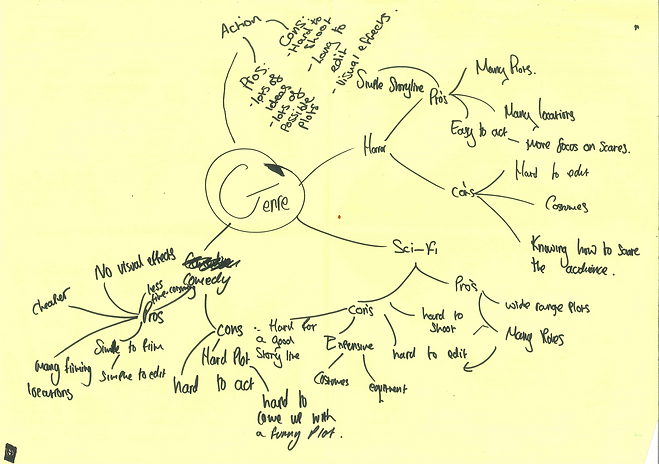 Action
Cons:
- Hard to
shoot
- Long to
edit
- Visual effects.
Pros:
- lots of
Ideas
- lots of
Possible
plots
Genre
Horror
Pro's
Simple Storyline
Many Plots.
Many locations
Easy to act
More focus on scares.
Con's
Hard to edit
Costumes
Knowing how to scare
the audience.
Sci-Fi
Pro's
wide range Plots
Many Roles
Con's
hard to
shoot
hard to edit
Expensive
Costumes
equipment
Comedy
Pros
No visual effects
less
cheaper
many filming
locations
Simple to film
Simple to edit
Cons
- Hard for
a good
Story line
Hard Plot
hard to act
hard to
come up with
a funny Plot.